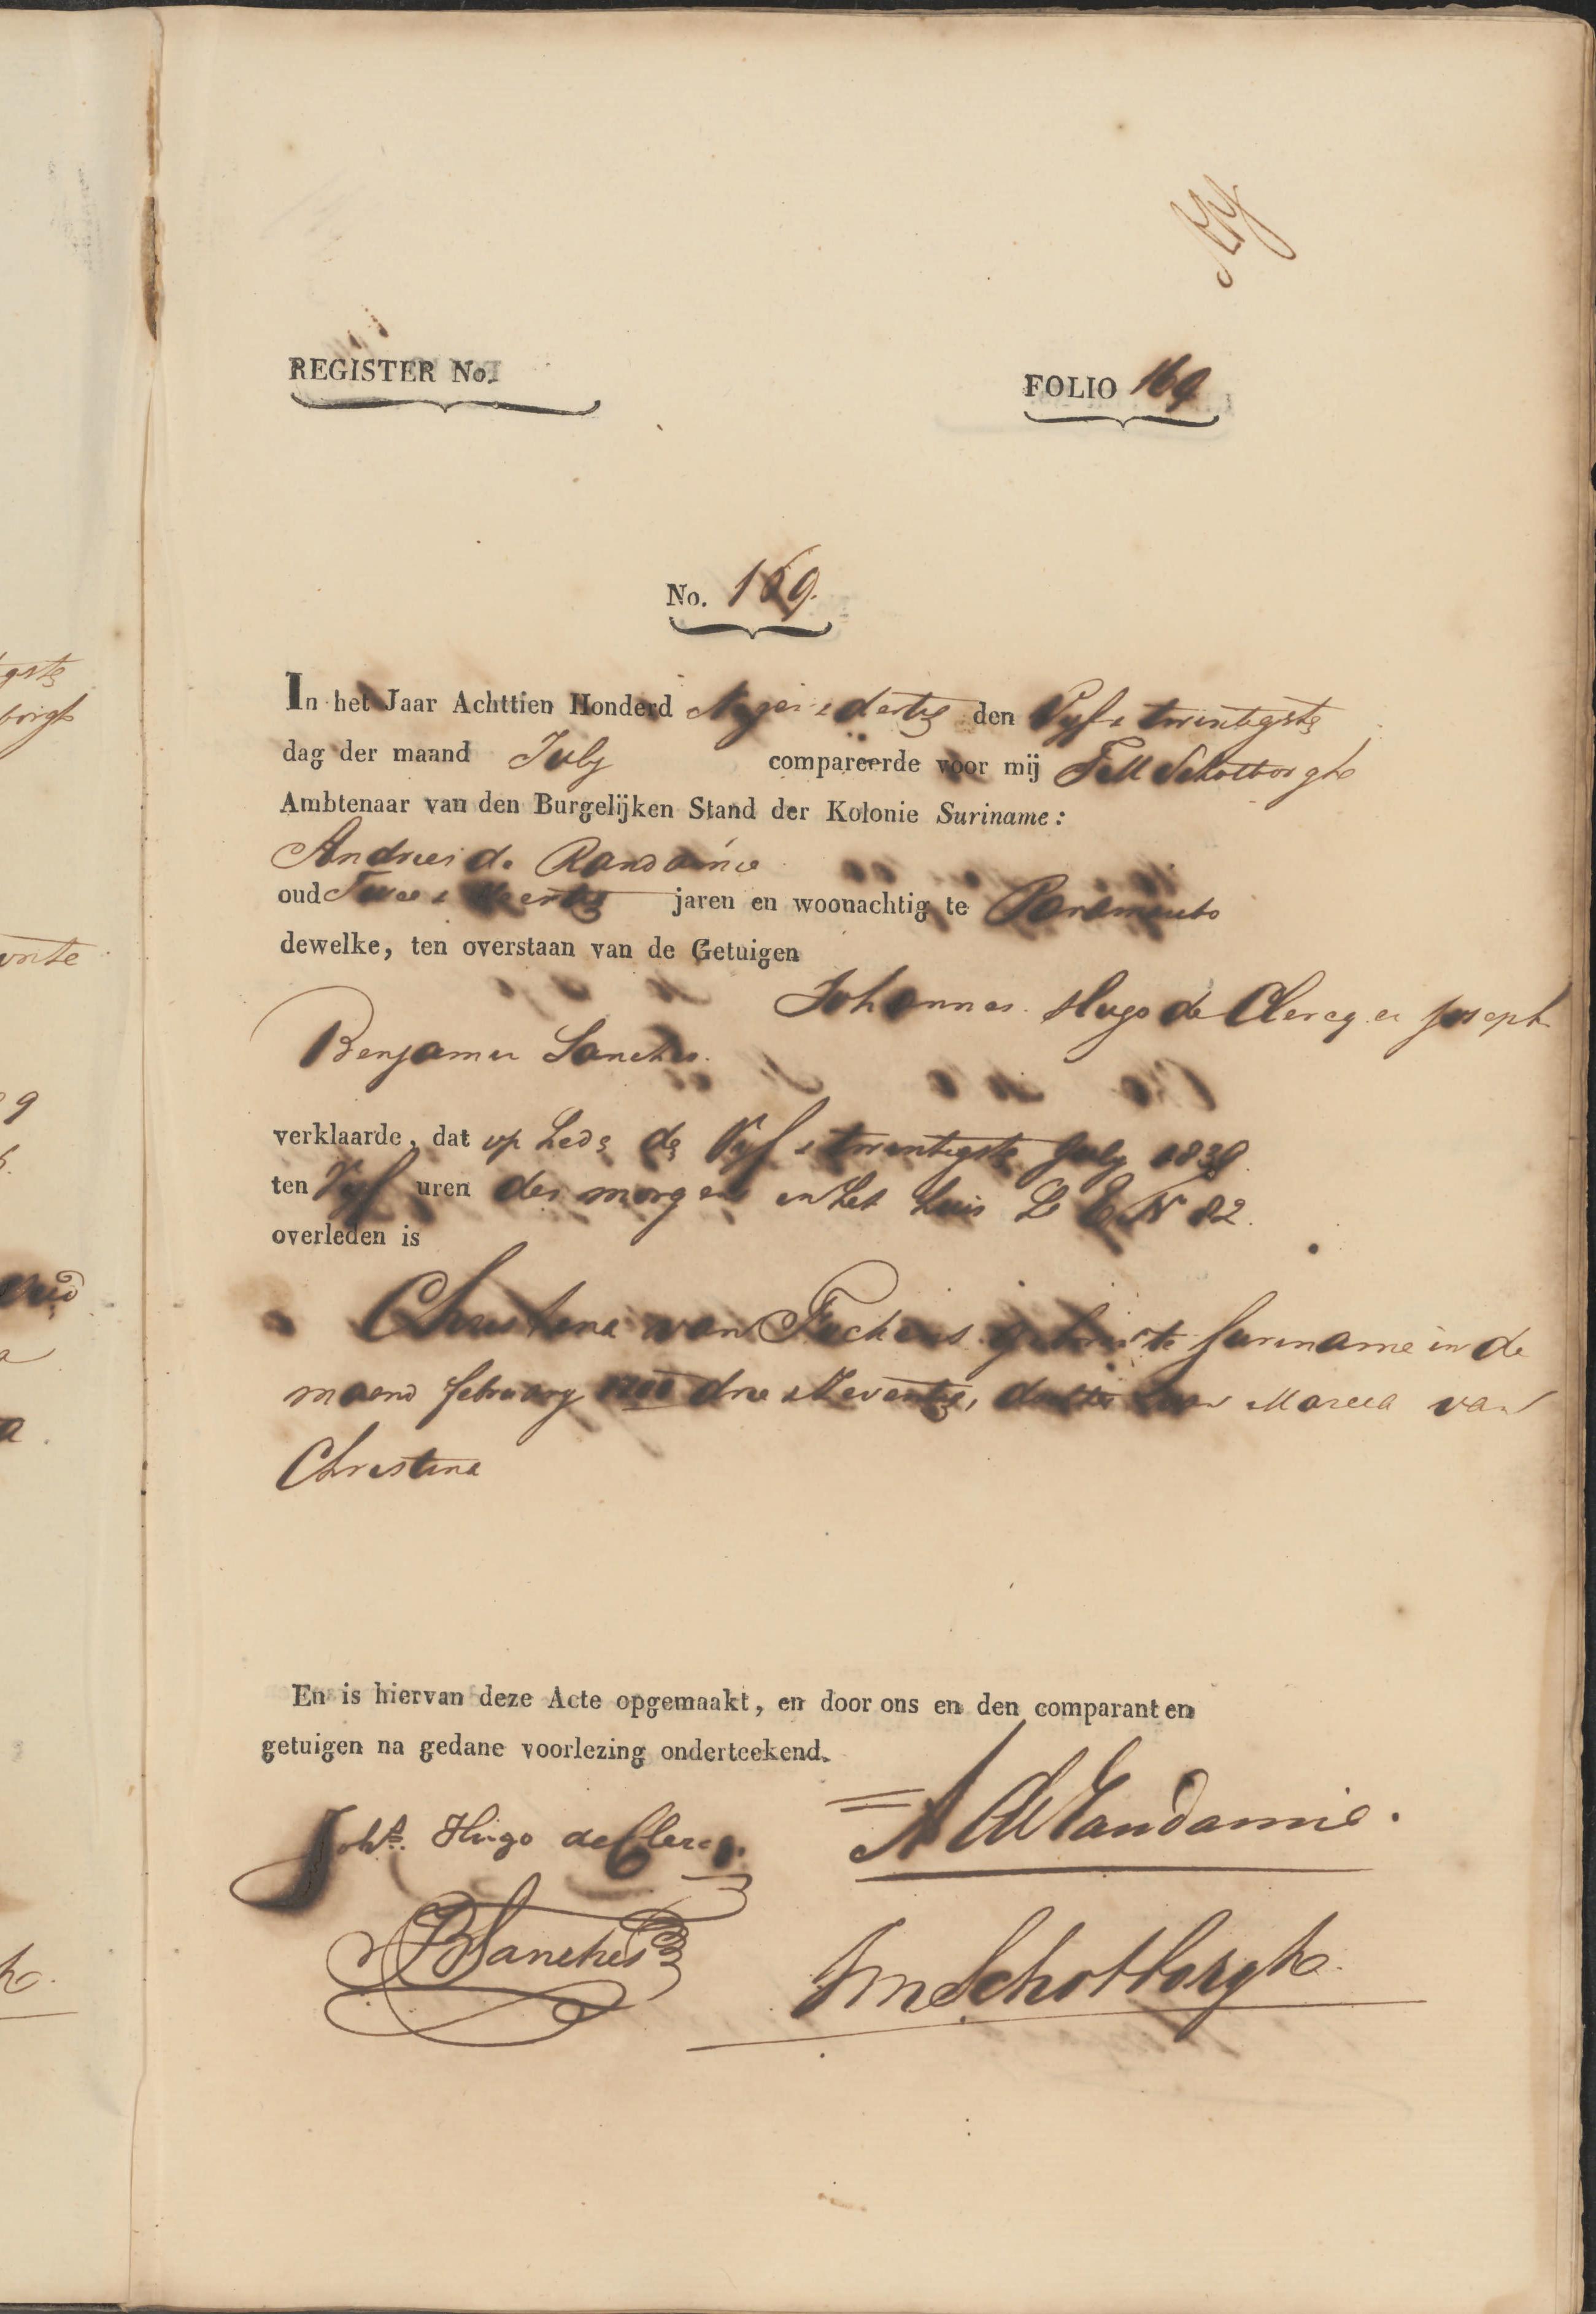 REGISTER No.
FOLIO 169
No. 169.
In het Jaar Achttien Honderd Negen & dertig den Vyf & twintigste
dag der maand July compareerde voor mij Schotborgh
Ambtenaar van den Burgelijken Stand der Kolonie Suriname:
Andries de Randamie
oud Twee & Veertig jaren en woonachtig te Paramaribo
dewelke, ten overstaan van de Getuigen
Johannes Hugo de Clercq en Joseph
Benjamin Sanches.
verklaarde, dat op hede de Vyf & twintigste July 1839.
ten Vyf uren des morgens in het huis L E N 82.
overleden is
Christina van Fockens geboren te Suriname in de
maand february 1700 drie & Zeventig, dochter van Marcia van
Christina
En is hiervan deze Acte opgemaakt, en door ons en den comparant en
getuigen na gedane voorlezing onderteekend.
Johs. Hugo de Clercq.
A D Randamie.
JB Sanches
Schotborgh